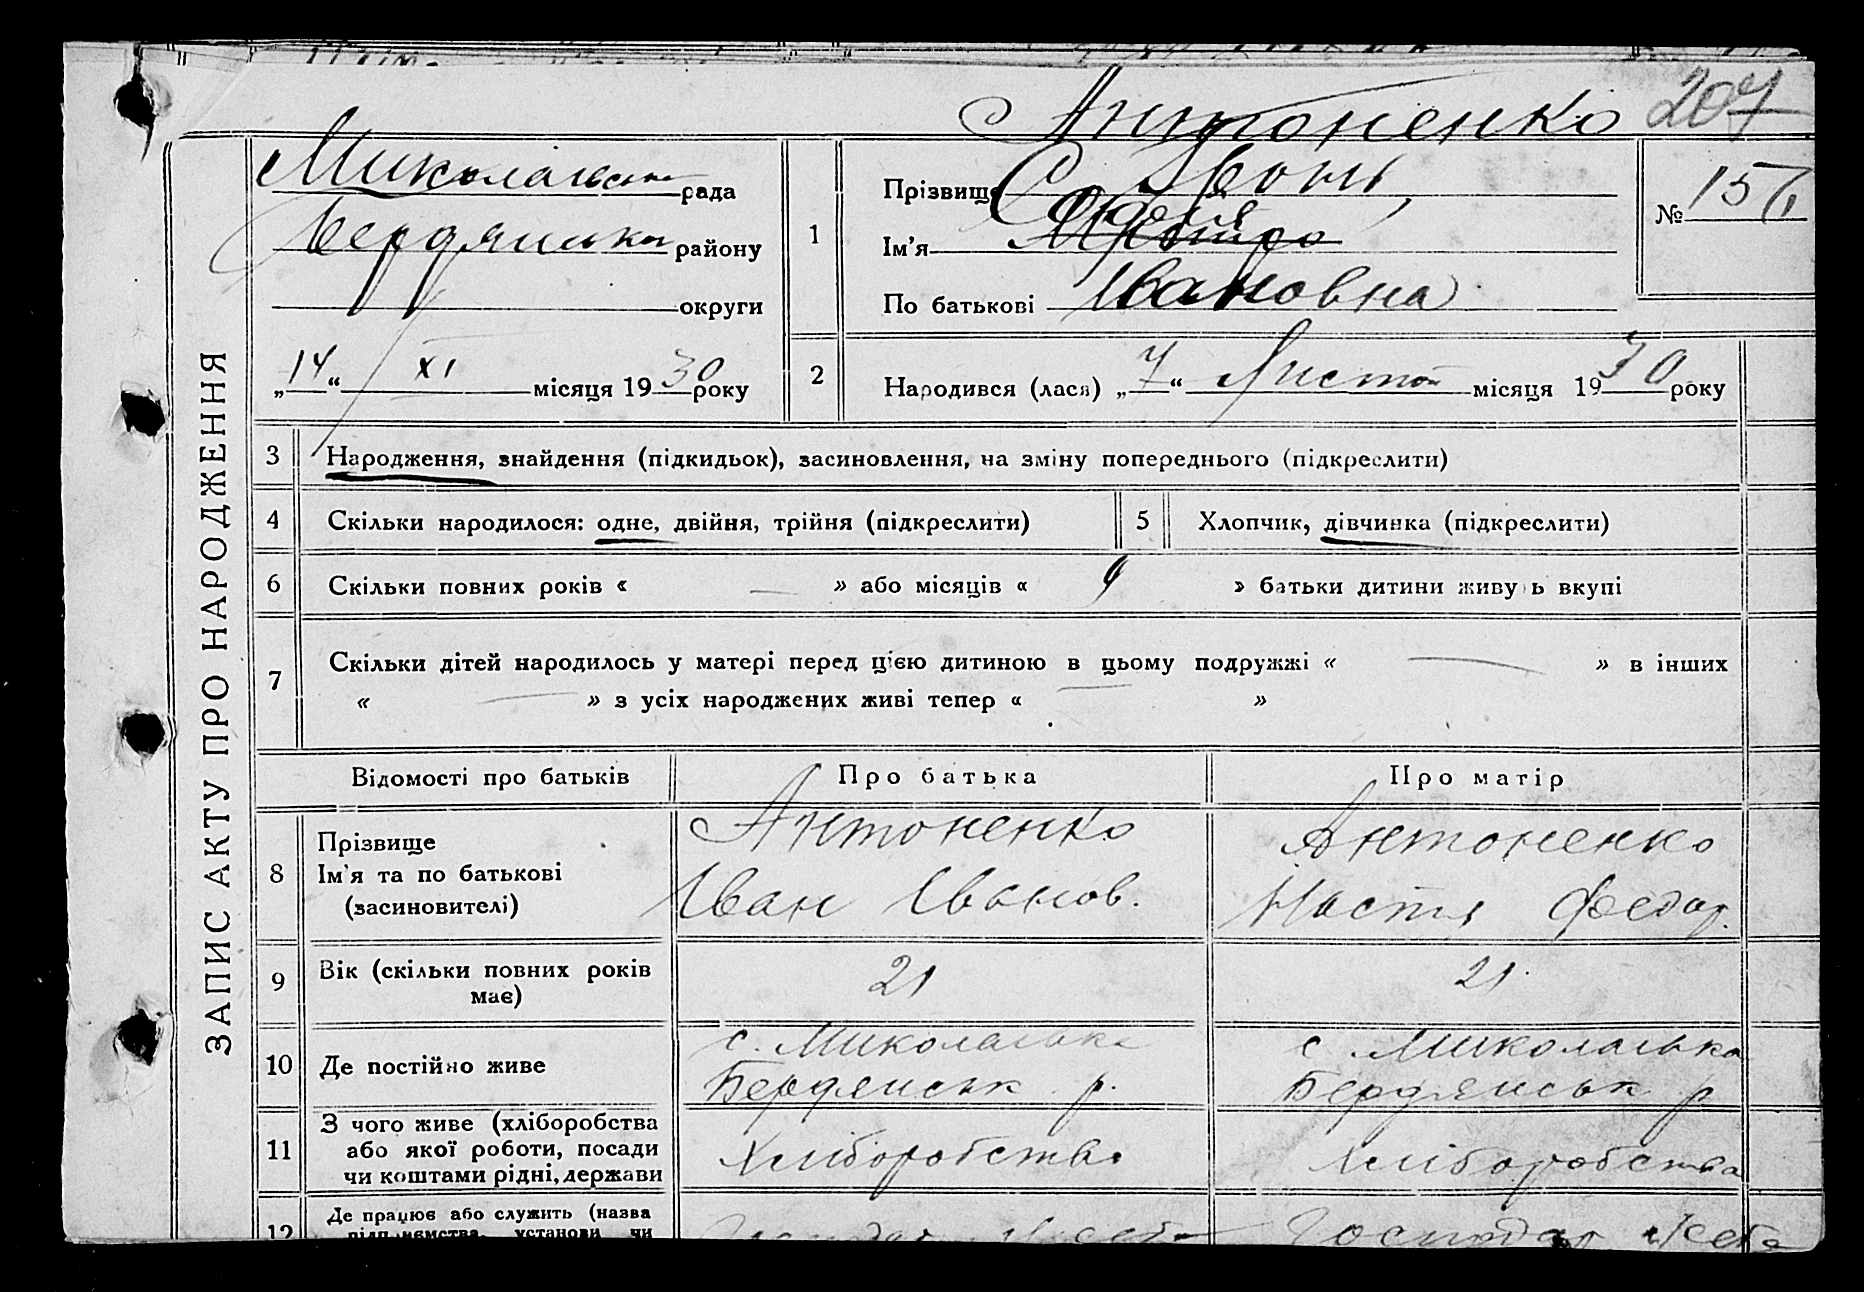 Антоненко 207
ЗАПИС АКТУ ПРО НАРОДЖЕННЯ
Миколаївська рада
Бердянська району
округи
„14“ XI місяця 1930 року
1 Прізвище
Ім'я
По батькові Івановна
№ 15
2 Народився (лася) „7“ Листоп місяця 1930 року
3 Народження, знайдення (підкидьок), засиновлення, на зміну попереднього (підкреслити)
4 Скільки народилося: одне, двійня, трійня (підкреслити)
5 Хлопчик, дівчинка (підкреслити)
6 Скільки повних років « — » або місяців « 9 » батьки дитини живуть вкупі
7 Скільки дітей народилось у матері перед цією дитиною в цьому подружжі « — » в інших
« — » з усіх народжених живі тепер « — »
Відомості про батьків Про батька Про матір
8 Прізвище
Ім'я та по батькові
(засиновителі)
Антоненко
Іван Іванов.
Антоненко
Настя Федор.
9 Вік (скільки повних років
має)
21
21
10 Де постійно живе
с. Миколаївка
Бердянськ р.
с. Миколаївка
Бердянськ р
11 З чого живе (хліборобства
або якої роботи, посади
чи коштами рідні, держави
Хліборобства
Хліборобства
12 Де працює або служить (назва
підприємства, установи чи
Господар
Господар